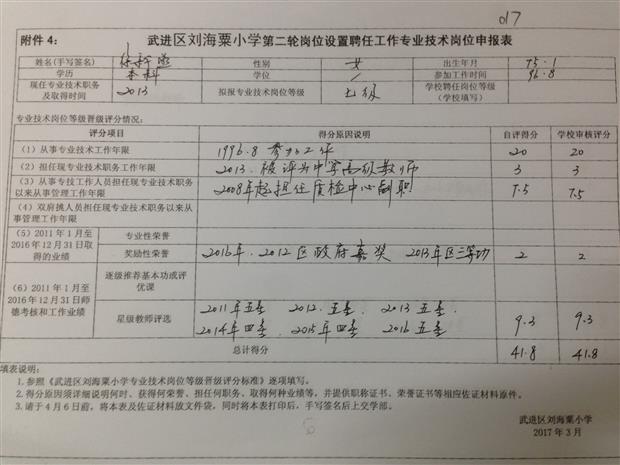 017
附件 4：
武进区刘海粟小学第二轮岗位设置聘任工作专业技术岗位申报表
姓名(手写签名) 性别 女 出生年月 75.1
学历 本科 学位 / 参加工作时间 96.8
现任专业技术职务及取得时间 2013 拟报专业技术岗位等级 七级 学校聘任岗位等级（学校填写）
专业技术岗位等级晋级评分情况：
评分项目 得分原因说明 自评得分 学校审核评分
（1）从事专业技术工作年限 1996.8 参加工作 20 20
（2）担任现专业技术职务工作年限 2013.被评为中学高级教师 3 3
（3）从事专技工作人员担任现专业技术职务以来从事管理工作年限 2008年起担任质检中心副职 7.5 7.5
（4）双肩挑人员担任现专业技术职务以来从事管理工作年限
（5）2011 年 1 月至 2016 年 12 月 31 日取得的业绩 专业性荣誉
奖励性荣誉 2016年、2012区政府嘉奖 2013年区三等功 2 2
（6）2011 年 1 月至 2016 年 12 月 31 日师德考核和工作业绩 逐级推荐基本功或评优课
星级教师评选 2011年五星 2012.五星、2013五星、
2014年四星、2015年四星、2016五星 9.3 9.3
总计得分 41.8 41.8
填表说明：
1.参照《武进区刘海粟小学专业技术岗位等级晋级评分标准》逐项填写。
2.得分原因须详细说明何时、获得何荣誉、担任何职务、取得何种业绩等，并提供职称证书、荣誉证书等相应佐证材料原件。
3.请于 4 月 6 日前，将本表及佐证材料放文件袋，同时将本表打印后，手写签名后上交学部。
武进区刘海粟小学
2017 年 3 月